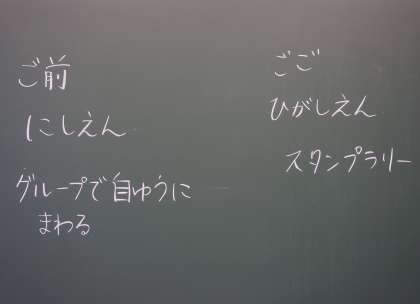 ご前
にしえん
グループで自ゆうに
まわる
ごご
ひがしえん
スタンプラリー